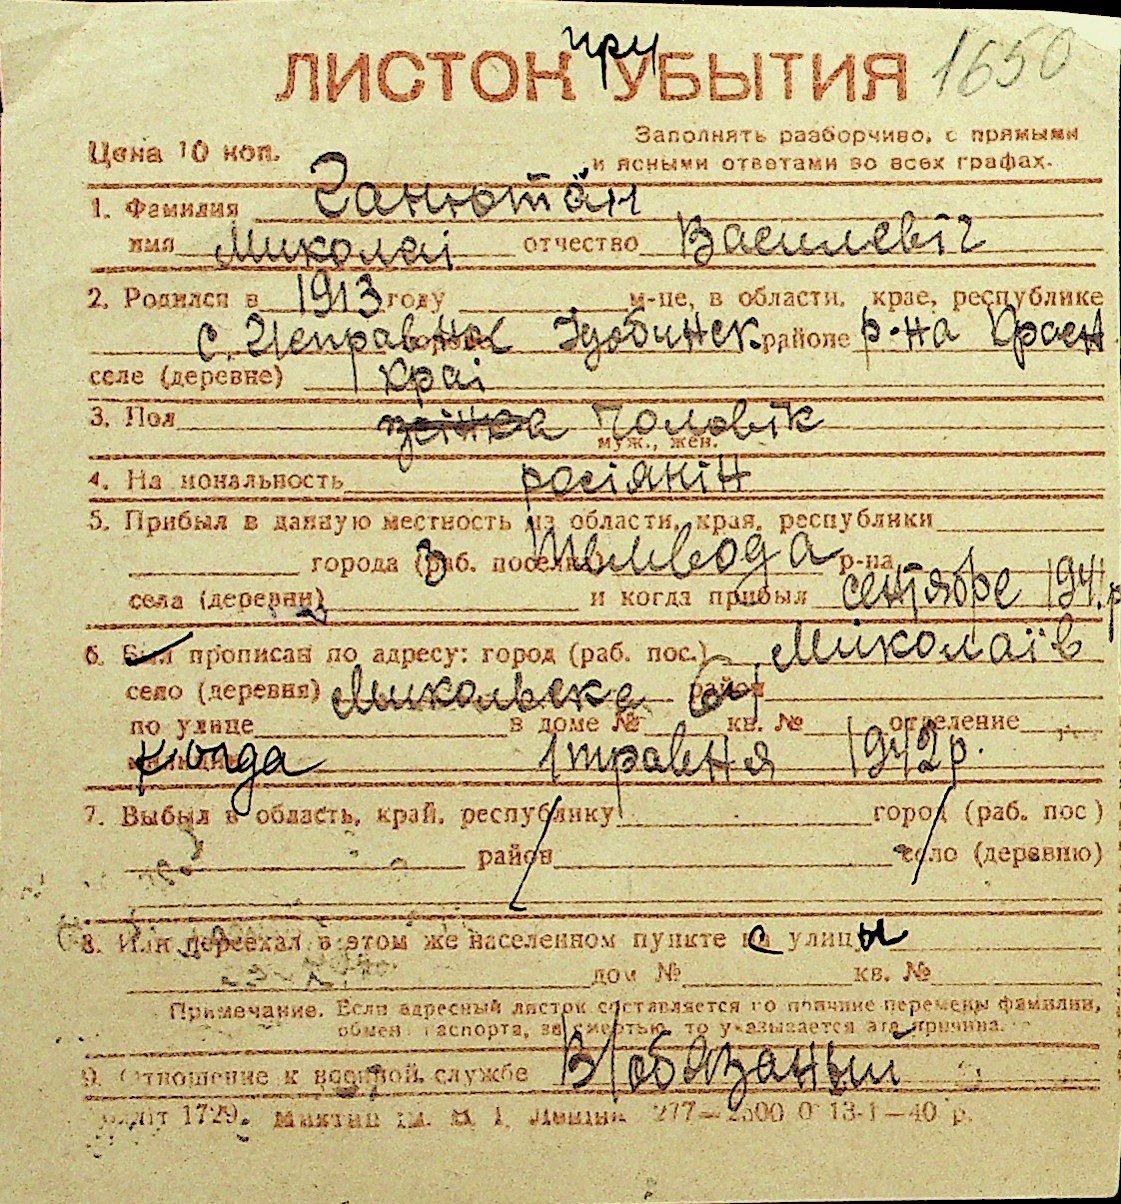 при
ЛИСТОК УБЫТИЯ 1650
Цена 10 коп.
Заполнять разборчиво, с прямыми
и ясными ответами во всех графах.
1. Фамилия Ганютан
имя Миколаі отчество Василевіч
2. Родился в 1913 году м-це, в области, крае, республике
с. Исправная районе р-на Красн
селе (деревне) краі
3. Пол жінка Чоловік
муж., жен.
4. На иональность росіянін
5. Прибыл в данную местность из области, края, республики
города (раб. поселка) р-на
села (деревни) и когда прибыл сентябре 1941 р
6. Был прописан по адресу: город (раб. пос.) Миколаїв
село (деревня) Микольска 67 район
по улице в доме № кв. № отделение
когда 1 травня 1942 р.
7. Выбыл в область, край, республику город (раб. пос)
район село (деревню)
8. Или переехал в этом же населенном пункте с улицы
дом № кв. №
Примечание. Если адресный листок составляется по причине перемены фамилии,
обмен паспорта, за смертью, то указывается эта причина.
9. Отношение к военной службе В/обязаный
1729. 277—2500 0 13-1—40 р.